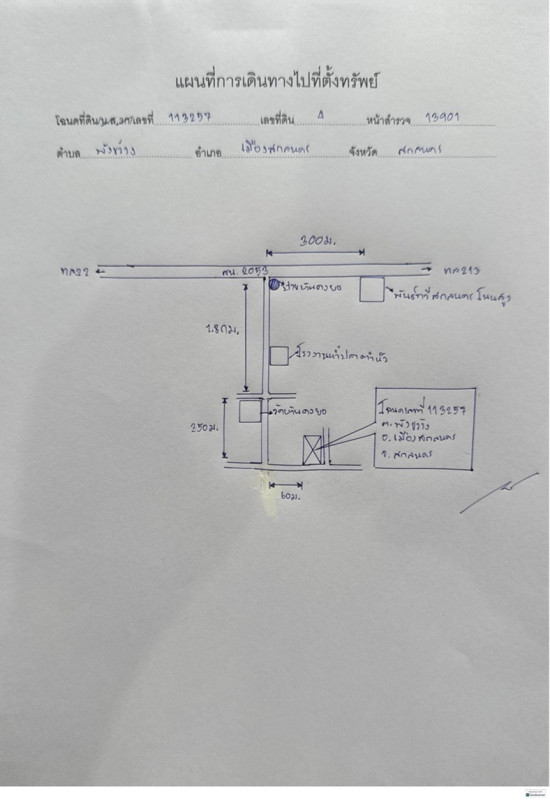 แผนที่การเดินทางไปที่ตั้งทรัพย์
โฉนดที่ดิน/น.ส.3ก/เลขที่ 113257 เลขที่ดิน 4 หน้าสำรวจ 13901
ตำบล พังขว้าง อำเภอ เมืองสกลนคร จังหวัด สกลนคร
300ม.
ทล22 สน. 2053 ทล213
พันธ์ทวี สกลนคร โนนสูง
1.8กม.
250ม.
โฉนดเลขที่ 113257
ต. พังขว้าง
อ. เมืองสกลนคร
จ. สกลนคร
60ม.